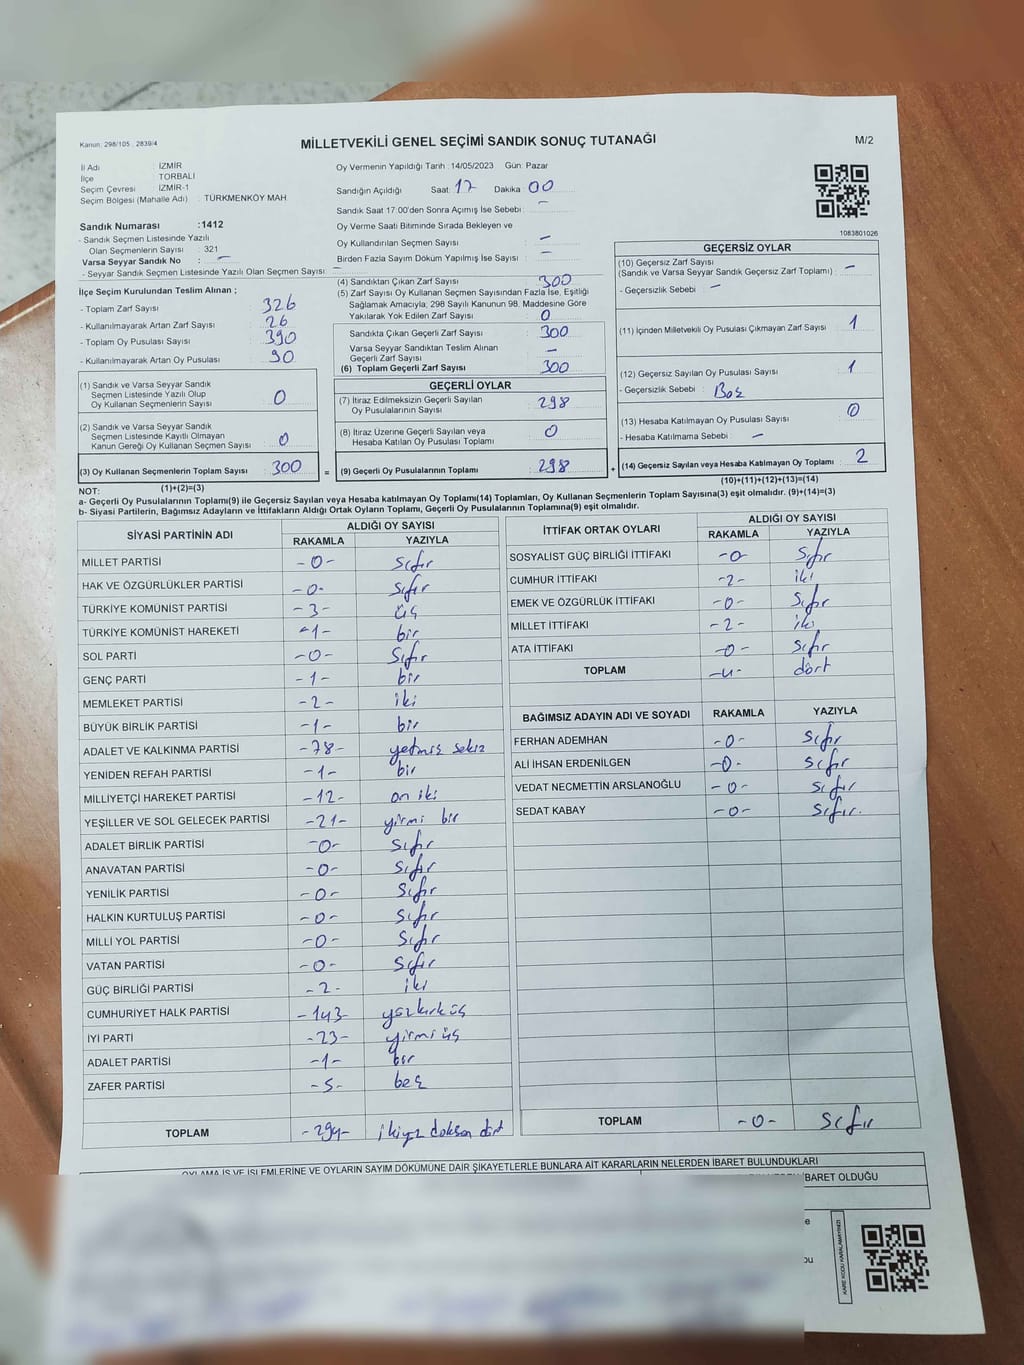 Kanun: 298/105 , 2839/4
MİLLETVEKİLİ GENEL SEÇİMİ SANDIK SONUÇ TUTANAĞI
M/2
İl Adı : İZMİR
İlçe : TORBALI
Seçim Çevresi : İZMİR-1
Seçim Bölgesi (Mahalle Adı) : TÜRKMENKÖY MAH
Oy Vermenin Yapıldığı Tarih :14/05/2023 Gün: Pazar
Sandığın Açıldığı Saat 17 Dakika 00
Sandık Saat 17:00'den Sonra Açımış İse Sebebi : -
Oy Verme Saati Bitiminde Sırada Bekleyen ve
Oy Kullandırılan Seçmen Sayısı -
Birden Fazla Sayım Döküm Yapılmış İse Sayısı : -
1083801026
Sandık Numarası :1412
- Sandık Seçmen Listesinde Yazılı
Olan Seçmenlerin Sayısı : 321
Varsa Seyyar Sandık No : -
- Seyyar Sandık Seçmen Listesinde Yazılı Olan Seçmen Sayısı : -
İlçe Seçim Kurulundan Teslim Alınan ;
- Toplam Zarf Sayısı 326
- Kullanılmayarak Artan Zarf Sayısı 26
- Toplam Oy Pusulası Sayısı 390
- Kullanılmayarak Artan Oy Pusulası 90
(1) Sandık ve Varsa Seyyar Sandık
Seçmen Listesinde Yazılı Olup
Oy Kullanan Seçmenlerin Sayısı 0
(2) Sandık ve Varsa Seyyar Sandık
Seçmen Listesinde Kayıtlı Olmayan
Kanun Gereği Oy Kullanan Seçmen Sayısı 0
(3) Oy Kullanan Seçmenlerin Toplam Sayısı 300 =
(1)+(2)=(3)
(4) Sandıktan Çıkan Zarf Sayısı 300
(5) Zarf Sayısı Oy Kullanan Seçmen Sayısından Fazla İse, Eşitliği
Sağlamak Amacıyla; 298 Sayılı Kanunun 98. Maddesine Göre
Yakılarak Yok Edilen Zarf Sayısı 0
Sandıkta Çıkan Geçerli Zarf Sayısı 300
Varsa Seyyar Sandıktan Teslim Alınan
Geçerli Zarf Sayısı -
(6) Toplam Geçerli Zarf Sayısı 300
GEÇERLİ OYLAR
(7) İtiraz Edilmeksizin Geçerli Sayılan
Oy Pusulalarının Sayısı 298
(8) İtiraz Üzerine Geçerli Sayılan veya
Hesaba Katılan Oy Pusulası Toplamı 0
(9) Geçerli Oy Pusulalarının Toplamı 298 +
GEÇERSİZ OYLAR
(10) Geçersiz Zarf Sayısı
(Sandık ve Varsa Seyyar Sandık Geçersiz Zarf Toplamı) : -
- Geçersizlik Sebebi : -
(11) İçinden Milletvekili Oy Pusulası Çıkmayan Zarf Sayısı 1
(12) Geçersiz Sayılan Oy Pusulası Sayısı 1
- Geçersizlik Sebebi : Boş
(13) Hesaba Katılmayan Oy Pusulası Sayısı 0
- Hesaba Katılmama Sebebi : -
(14) Geçersiz Sayılan veya Hesaba Katılmayan Oy Toplamı 2
(10)+(11)+(12)+(13)=(14)
NOT:
a- Geçerli Oy Pusulalarının Toplamı(9) ile Geçersiz Sayılan veya Hesaba katılmayan Oy Toplamı(14) Toplamları, Oy Kullanan Seçmenlerin Toplam Sayısına(3) eşit olmalıdır. (9)+(14)=(3)
b- Siyasi Partilerin, Bağımsız Adayların ve İttifakların Aldığı Ortak Oyların Toplamı, Geçerli Oy Pusulalarının Toplamına(9) eşit olmalıdır.
SİYASİ PARTİNİN ADI ALDIĞI OY SAYISI
RAKAMLA YAZIYLA
MİLLET PARTİSİ -0- Sıfır
HAK VE ÖZGÜRLÜKLER PARTİSİ -0- Sıfır
TÜRKİYE KOMÜNİST PARTİSİ -3- üç
TÜRKİYE KOMÜNİST HAREKETİ -1- bir
SOL PARTİ -0- Sıfır
GENÇ PARTİ -1- bir
MEMLEKET PARTİSİ -2- iki
BÜYÜK BİRLİK PARTİSİ -1- bir
ADALET VE KALKINMA PARTİSİ -78- yetmiş sekiz
YENİDEN REFAH PARTİSİ -1- bir
MİLLİYETÇİ HAREKET PARTİSİ -12- on iki
YEŞİLLER VE SOL GELECEK PARTİSİ -21- yirmi bir
ADALET BİRLİK PARTİSİ -0- Sıfır
ANAVATAN PARTİSİ -0- Sıfır
YENİLİK PARTİSİ -0- Sıfır
HALKIN KURTULUŞ PARTİSİ -0- Sıfır
MİLLİ YOL PARTİSİ -0- Sıfır
VATAN PARTİSİ -0- Sıfır
GÜÇ BİRLİĞİ PARTİSİ -2- iki
CUMHURİYET HALK PARTİSİ -143- yüzkırküç
İYİ PARTİ -23- yirmi üç
ADALET PARTİSİ -1- bir
ZAFER PARTİSİ -5- beş
TOPLAM -294- ikiyüz doksan dört
İTTİFAK ORTAK OYLARI ALDIĞI OY SAYISI
RAKAMLA YAZIYLA
SOSYALİST GÜÇ BİRLİĞİ İTTİFAKI -0- Sıfır
CUMHUR İTTİFAKI -2- iki
EMEK VE ÖZGÜRLÜK İTTİFAKI -0- Sıfır
MİLLET İTTİFAKI -2- iki
ATA İTTİFAKI -0- Sıfır
TOPLAM -4- dört
BAĞIMSIZ ADAYIN ADI VE SOYADI RAKAMLA YAZIYLA
FERHAN ADEMHAN -0- Sıfır
ALİ İHSAN ERDENİLGEN -0- Sıfır
VEDAT NECMETTİN ARSLANOĞLU -0- Sıfır
SEDAT KABAY -0- Sıfır.
TOPLAM -0- Sıfır
OYLAMA İŞ VE İŞLEMLERİNE VE OYLARIN SAYIM DÖKÜMÜNE DAİR ŞİKAYETLERLE BUNLARA AİT KARARLARIN NELERDEN İBARET BULUNDUKLARI
İBARET OLDUĞU
KARE KODU KARALAMAYINIZ!